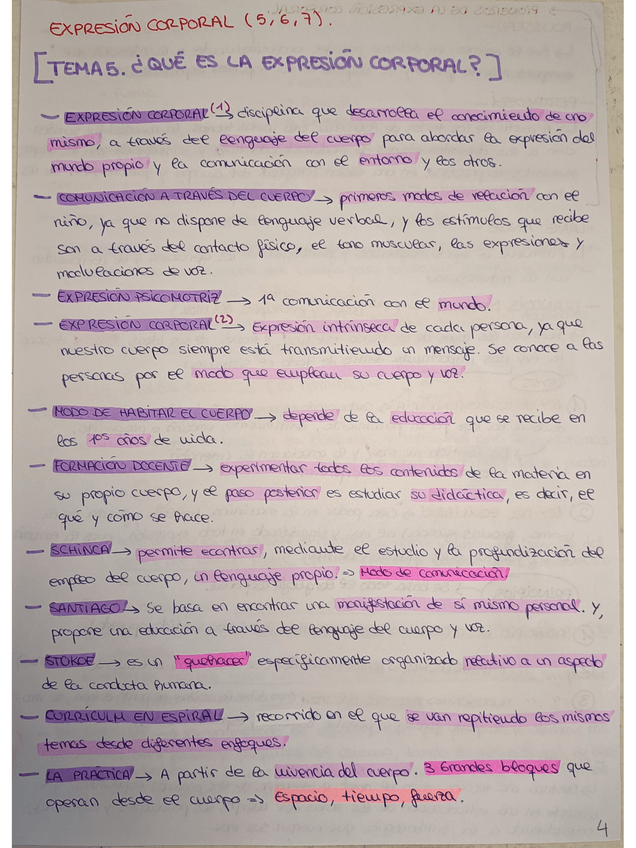 EXPRESIÓN CORPORAL (5, 6, 7).
[TEMA 5. ¿QUÉ ES LA EXPRESIÓN CORPORAL?]
— EXPRESIÓN CORPORAL (1) → disciplina que desarrolla el conocimiento de uno
mismo, a través del lenguaje del cuerpo para abordar la expresión del
mundo propio y la comunicación con el entorno y los otros.
— COMUNICACIÓN A TRAVÉS DEL CUERPO → primeros modos de relación con el
niño, ya que no dispone de lenguaje verbal, y los estímulos que recibe
son a través del contacto físico, el tono muscular, las expresiones y
modulaciones de voz.
— EXPRESIÓN PSICOMOTRIZ → 1ª comunicación con el mundo.
— EXPRESIÓN CORPORAL (2) → Expresión intrínseca de cada persona, ya que
nuestro cuerpo siempre está transmitiendo un mensaje. Se conoce a las
personas por el modo que emplean su cuerpo y voz.
— MODO DE HABITAR EL CUERPO → depende de la educación que se recibe en
los 1ºs años de vida.
— FORMACIÓN DOCENTE → experimentar todos los contenidos de la materia en
su propio cuerpo, y el paso posterior es estudiar su didáctica, es decir, el
qué y cómo se hace.
— SCHINCA → permite econtrar, mediante el estudio y la profundización del
empleo del cuerpo, un lenguaje propio. => Modo de comunicación
— SANTIAGO → Se basa en encontrar una manifestación de sí mismo personal. Y,
propone una educación a través del lenguaje del cuerpo y voz.
— STOKOE → es un "quehacer" específicamente organizado relativo a un aspecto
de la conducta humana.
— CURRÍCULM EN ESPIRAL → recorrido en el que se van repitiendo los mismos
temas desde diferentes enfoques.
— LA PRÁCTICA → A partir de la vivencia del cuerpo. 3 Grandes bloques que
operan desde el cuerpo => Espacio, tiempo, fuerza.
4